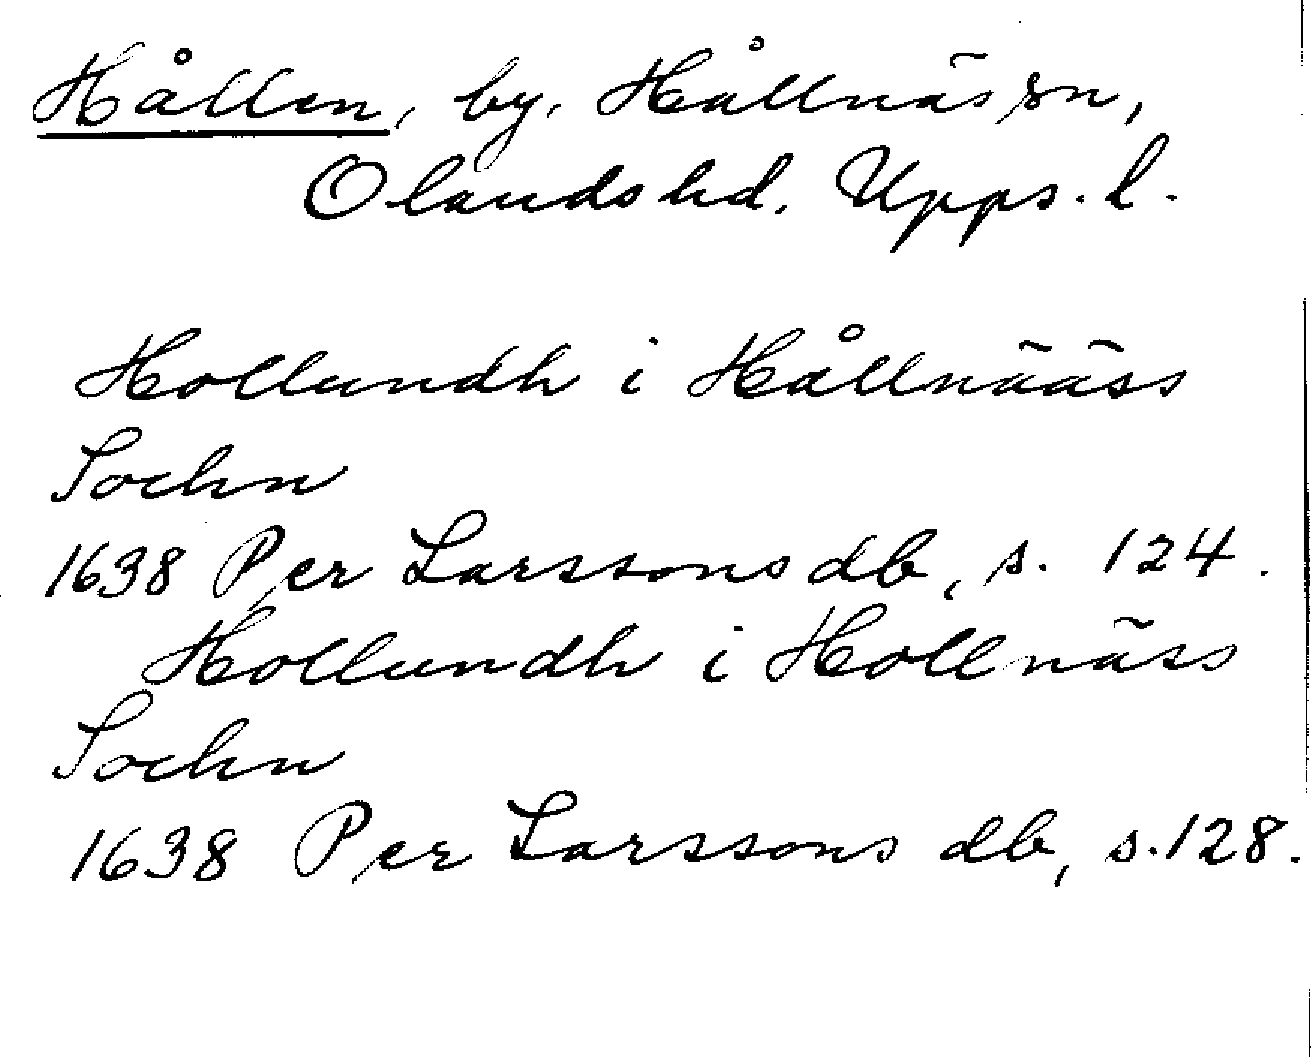 Hållen, by, Hållnäs sn,
Olands hd. Upps. l.
Hollundh i Hållnääss
Sochn
1638 Per Larssons db, s. 124.
Hollundh i Hollnäss
Sochn
1638 Per Larssons db, s. 128.